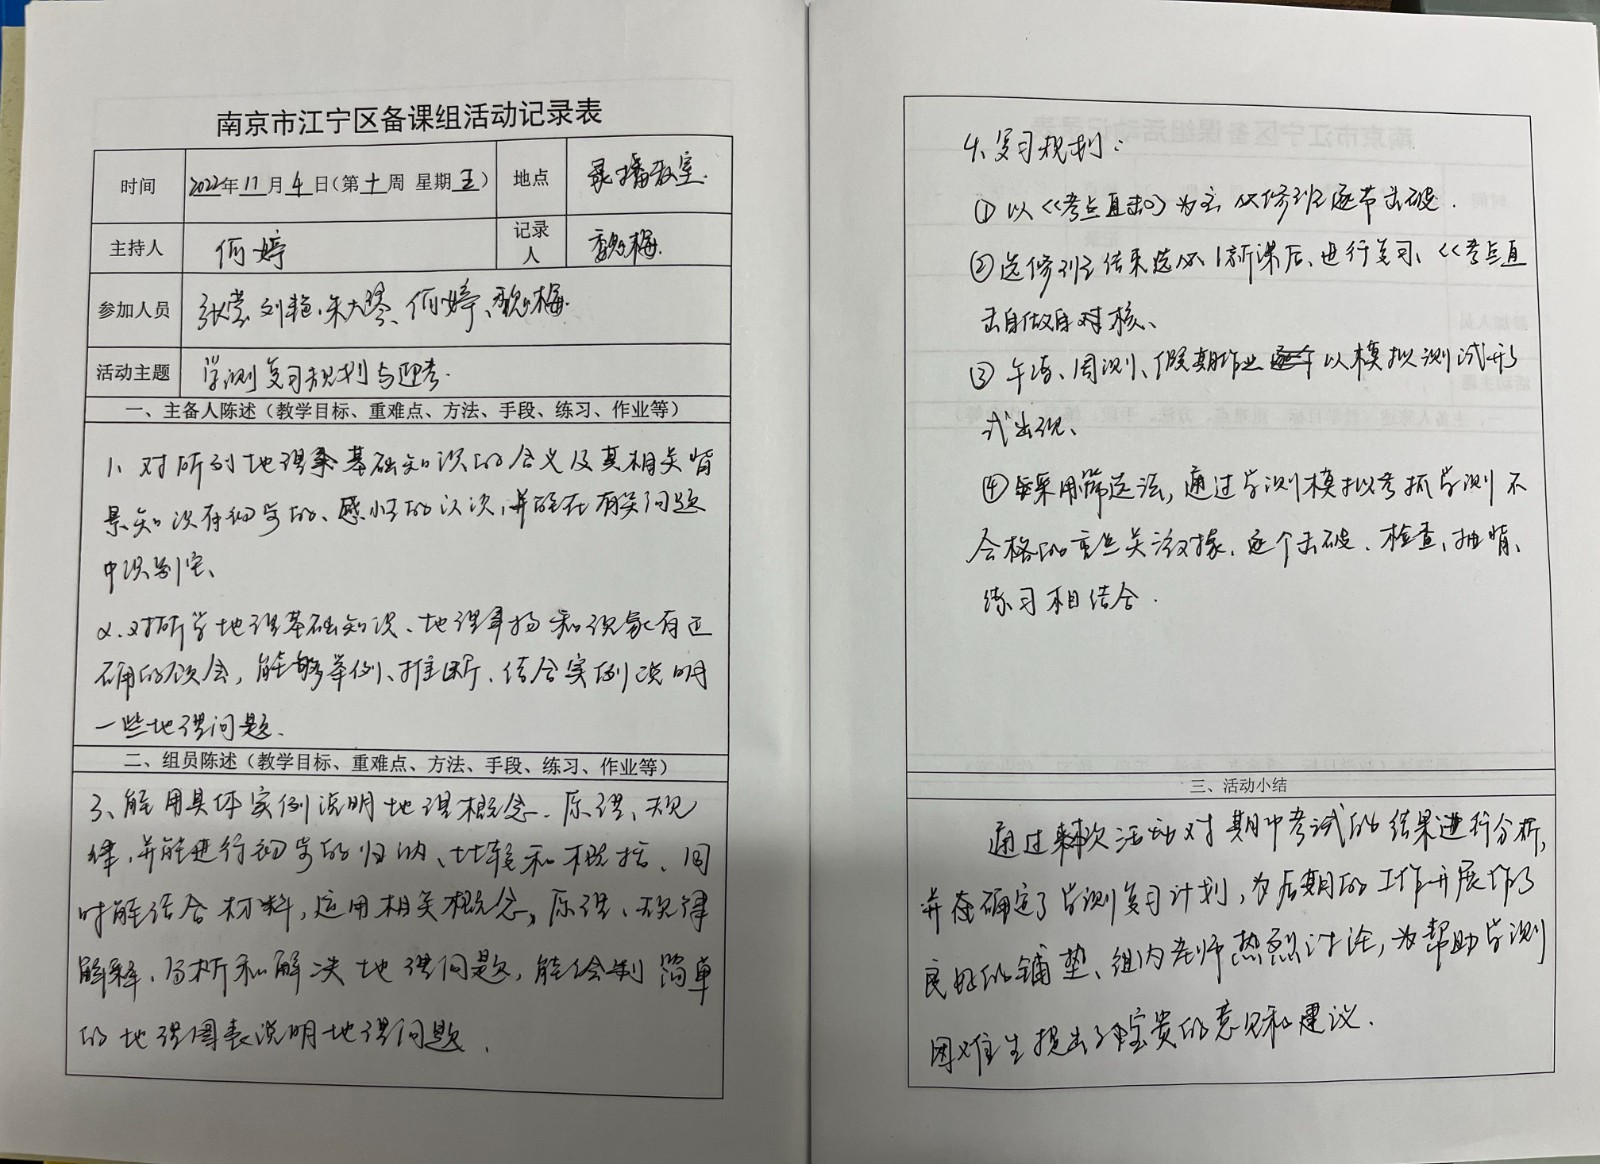 南京市江宁区备课组活动记录表
时间 2022年11月4日(第十周 星期五) 地点 录播教室.
主持人 何婷 记录人 魏梅.
参加人员 张莹、刘艳、朱大琴、何婷、魏梅.
活动主题 学测复习规划与迎考.
一、主备人陈述（教学目标、重难点、方法、手段、练习、作业等）
1、对所列地理基础知识的含义及其相关背
景知识有初步的、感性的认识,并能在有关问题
中识别它、
2、对所学地理基础知识、地理事物和现象有正
确的领会，能够举例、推断、结合实例说明
一些地理问题.
二、组员陈述（教学目标、重难点、方法、手段、练习、作业等）
3、能用具体实例说明地理概念、原理、规
律,并能进行初步的归纳、比较和概括、同
时能结合材料,运用相关概念、原理、规律
解释、分析和解决地理问题,能绘制简单
的地理图表说明地理问题.
4、复习规划:
①以《考点直击》为主 选修班逐节击破.
②选修班结束选必1新课后、进行复习、《考点直
击自做自对核、
③午练、周测、假期作业以模拟测试形
式出现、
④采用筛选法,通过学测模拟考抓学测不
合格的重点关注对象、逐个击破、检查、抽背、
练习相结合.
三、活动小结
通过本次活动对期中考试的结果进行分析,
并确定了学测复习计划,为后期的工作开展作了
良好的铺垫、组内老师热烈讨论,为帮助学测
困难生提出了宝贵的意见和建议.